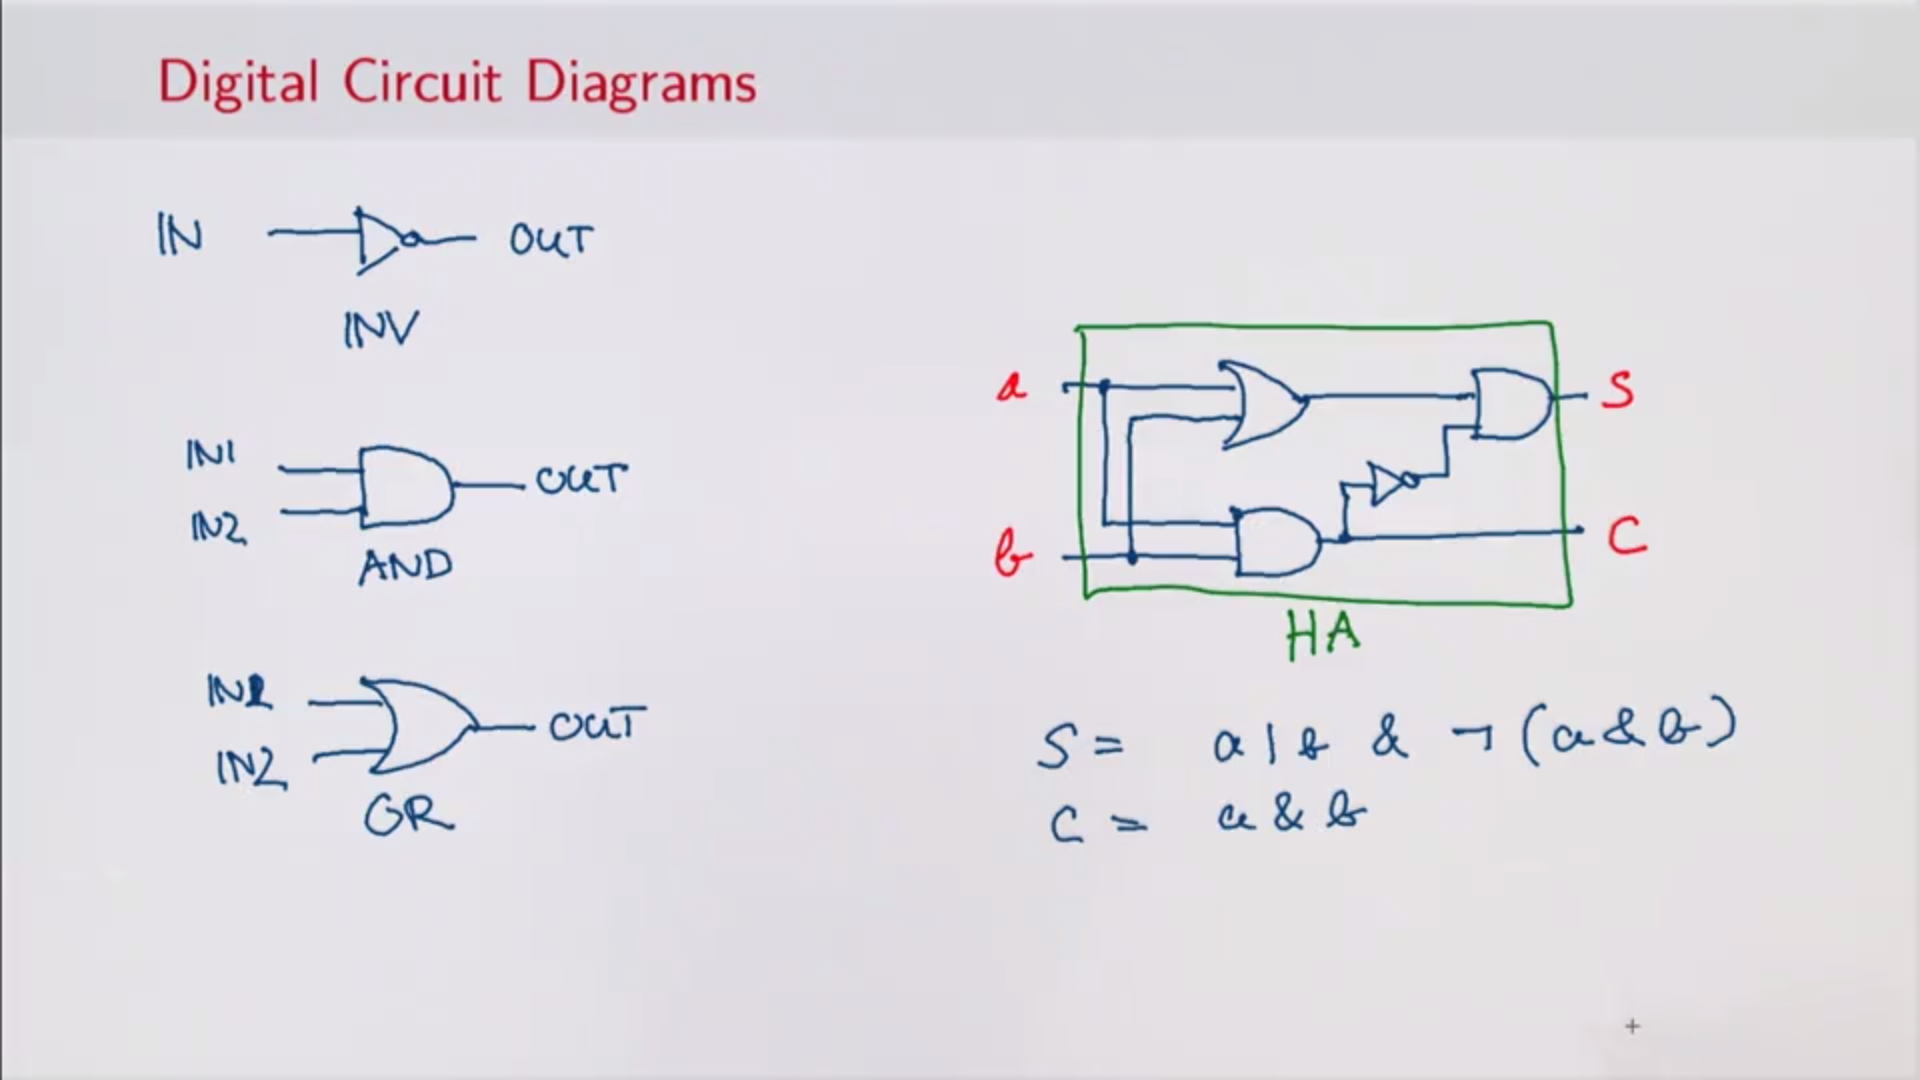 Digital Circuit Diagrams
IN OUT
INV
IN1
IN2
OUT
AND
IN1
IN2
OUT
OR
a
b
S
C
HA
S = a | b & ¬ (a & b)
C = a & b